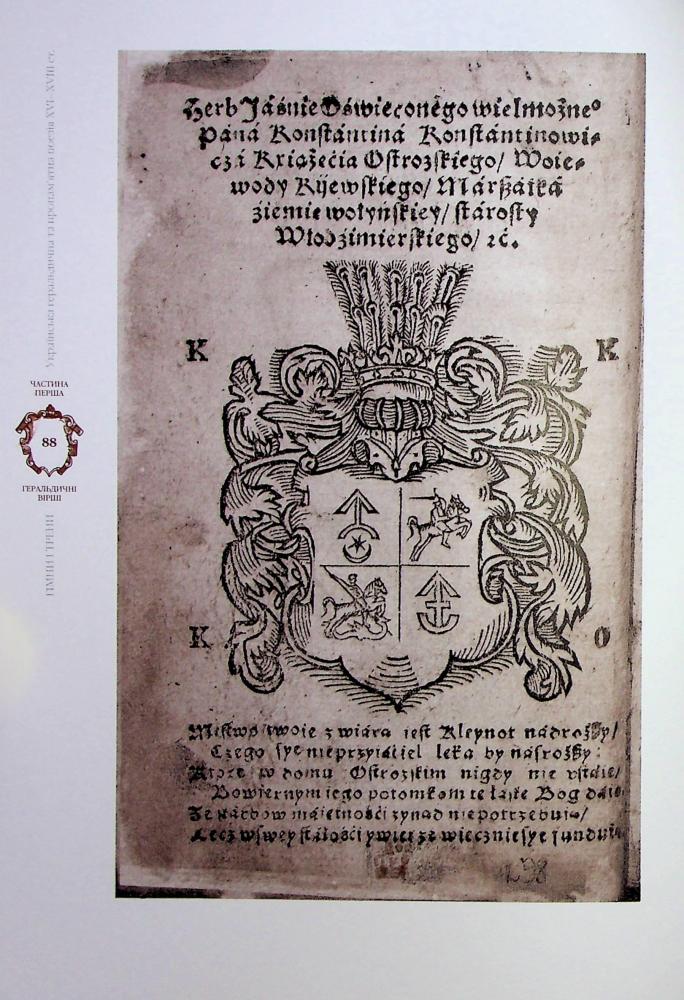 Українська геральдична та пропам'ятна поезія XVI–XVIII ст.
ЧАСТИНА
ПЕРША
88
ГЕРАЛЬДИЧНІ
ВІРШІ
Herb Jáśnie Oświeconégo wielmożneº
Páná Konstántiná Konstántinowi⸗
czá Kxiążęciá Ostrozskiego/ Woie⸗
wody Kijewskiego/ Márszałká
ziemie wołyńskiey/ stárosty
Włodzimierskiego/ ꝛć.
K K
K O
Męstwo twoie z wiárą iest Kleynot nadroższy/
Czego sye nieprzyiaciel lęka by nasroższy:
Ktore w domu Ostrozskim nigdy nie vstáie/
Bo wiernym iego potomkom tę łáskę Bog dáie
Te skárbow máiętności zynąd nie potrzebuią/
Lecz w swey stałości